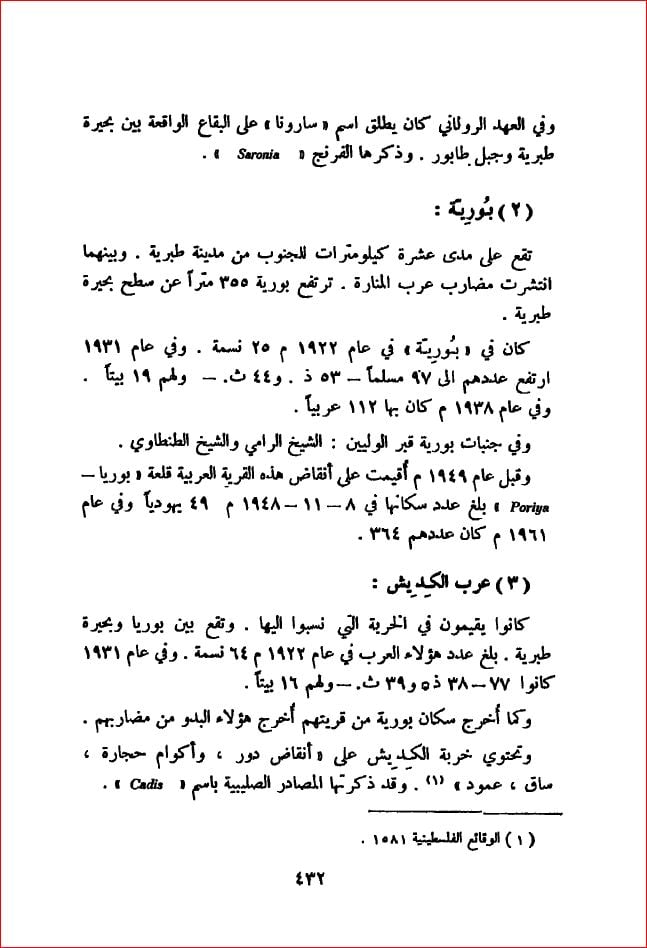 وفي العهد الروماني كان يطلق اسم « سارونا » على البقاع الواقعة بين بحيرة
طبرية وجبل طابور . وذكرها الفرنج « Saronia » .
( ٢ ) بُورِيّة :
تقع على مدى عشرة كيلومترات للجنوب من مدينة طبرية . وبينهما
انتشرت مضارب عرب المنارة . ترتفع بورية ٣٥٥ متراً عن سطح بحيرة
طبرية .
كان في « بُورِيّة » في عام ١٩٢٢ م ٢٥ نسمة . وفي عام ١٩٣١
ارتفع عددهم الى ٩٧ مسلماً – ٥٣ ذ . و٤٤ ث. – ولهم ١٩ بيتاً .
وفي عام ١٩٣٨ م كان بها ١١٢ عربياً .
وفي جنبات بورية قبر الوليين : الشيخ الرامي والشيخ الطنطاوي .
وقبل عام ١٩٤٩ م أُقيمت على أنقاض هذه القرية العربية قلعة « بوريا –
Poriya » بلغ عدد سكانها في ٨ – ١١ – ١٩٤٨ م ٤٩ يهودياً وفي عام
١٩٦١ م كان عددهم ٣٦٤ .
( ٣ ) عرب الكِدِيش :
كانوا يقيمون في الخربة التي نسبوا اليها . وتقع بين بوريا وبحيرة
طبرية . بلغ عدد هؤلاء العرب في عام ١٩٢٢ م ٦٤ نسمة . وفي عام ١٩٣١
كانوا ٧٧ – ٣٨ ذ٥ و٣٩ ث. – ولهم ١٦ بيتاً .
وكما أُخرج سكان بورية من قريتهم أُخرج هؤلاء البدو من مضاربهم .
وتحتوي خربة الكِدِيش على « أنقاض دور ، وأكوام حجارة ،
ساق ، عمود » (١) . وقد ذكرتها المصادر الصليبية باسم « Cadis » .
( ١ ) الوقائع الفلسطينية ١٥٨١ .
٤٣٢